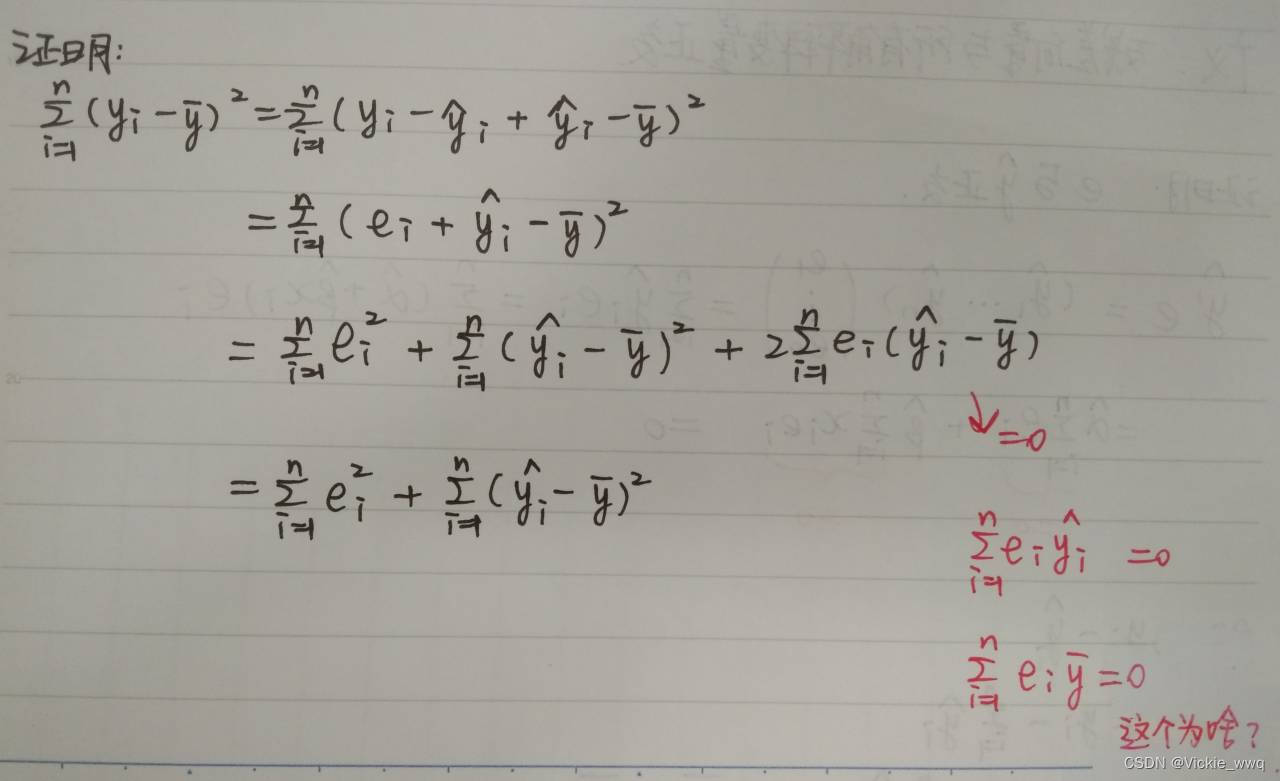 证明:
$\sum_{i=1}^{n}(y_i-\bar{y})^2=\sum_{i=1}^{n}(y_i-\hat{y}_i+\hat{y}_i-\bar{y})^2$
$=\sum_{i=1}^{n}(e_i+\hat{y}_i-\bar{y})^2$
$=\sum_{i=1}^{n}e_i^2+\sum_{i=1}^{n}(\hat{y}_i-\bar{y})^2+2\sum_{i=1}^{n}e_i(\hat{y}_i-\bar{y})$
↓=0
$=\sum_{i=1}^{n}e_i^2+\sum_{i=1}^{n}(\hat{y}_i-\bar{y})^2$
$\sum_{i=1}^{n}e_i\hat{y}_i=0$
$\sum_{i=1}^{n}e_i\bar{y}=0$
这个为啥?
CSDN @Vickie_wwq